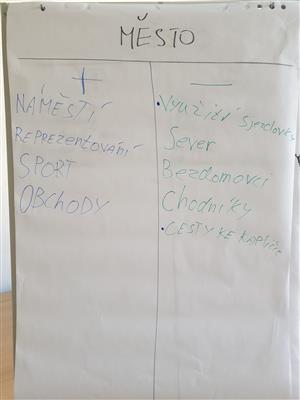 MĚSTO
+
NÁMĚSTÍ
REPREZENTOVÁNÍ
SPORT
OBCHODY
—
• Využití sjezdovky
Sever
Bezdomovci
Chodníky
• CESTY KE KAPLIČCE